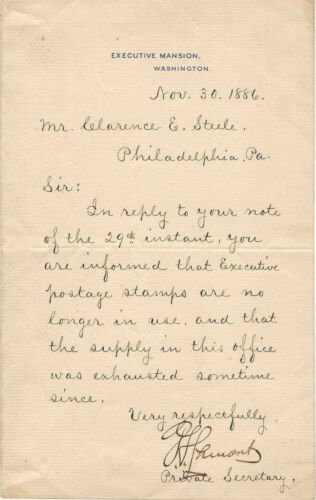 EXECUTIVE MANSION,
WASHINGTON.
Nov. 30, 1886.
Mr. Clarence E. Steele,
Philadelphia, Pa.
Sir:
In reply to your note
of the 29th instant, you
are informed that Executive
postage stamps are no
longer in use, and that
the supply in this office
was exhausted sometime
since.
Very respectfully,
D. S. Lamont
Private Secretary.